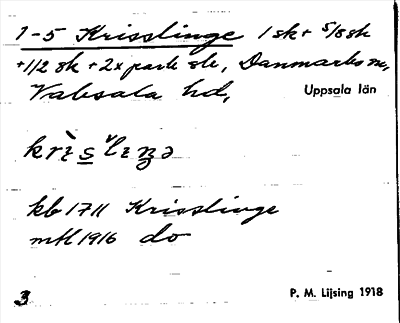 1-5 Krisslinge 1 sk + 5/8 sk
+1/2 sk + 2 x park sle, Danmarks sn,
Vaksala hd, Uppsala län
krìs̲ʹlıŋə
kb 1711 Krisslinge
mtl 1916 do
3 P. M. Lijsing 1918